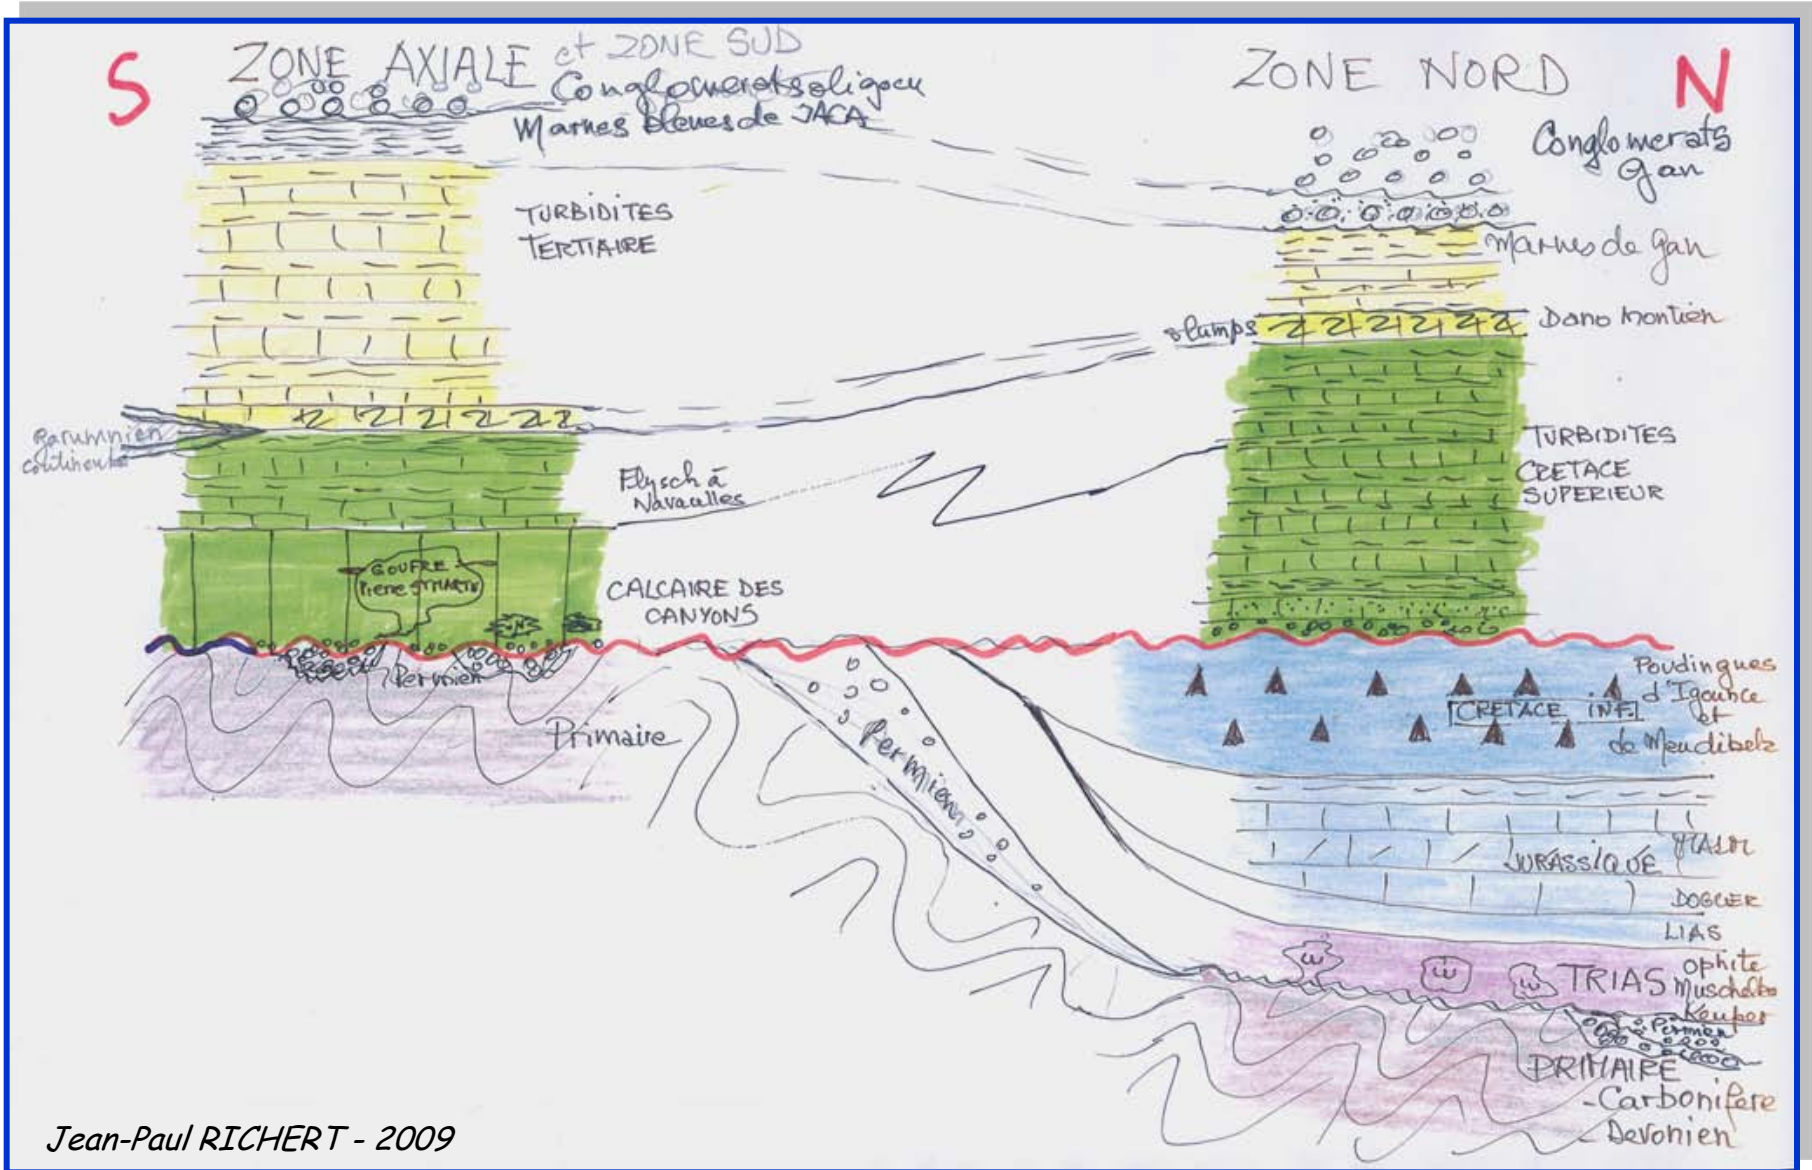 S
ZONE AXIALE et ZONE SUD
Conglomerats oligocu
Marnes bleues de JACA
TURBIDITES
TERTIAIRE
Garumnien
continental
Flysch à
Navacelles
GOUFRE
Pierre St MARTIN
CALCAIRE DES
CANYONS
Permien
Primaire
Permien
ZONE NORD
N
Conglomerats
Gan
Marnes de Gan
slumps
Dano Montien
TURBIDITES
CRETACE
SUPERIEUR
Poudingues
d'Igounce
et
de Mendibelz
CRETACE INF.
JURASSIQUE
MALM
DOGGER
LIAS
TRIAS
Ophite
Muschelka
Keuper
Permien
PRIMAIRE
- Carbonifere
- Devonien
Jean-Paul RICHERT - 2009